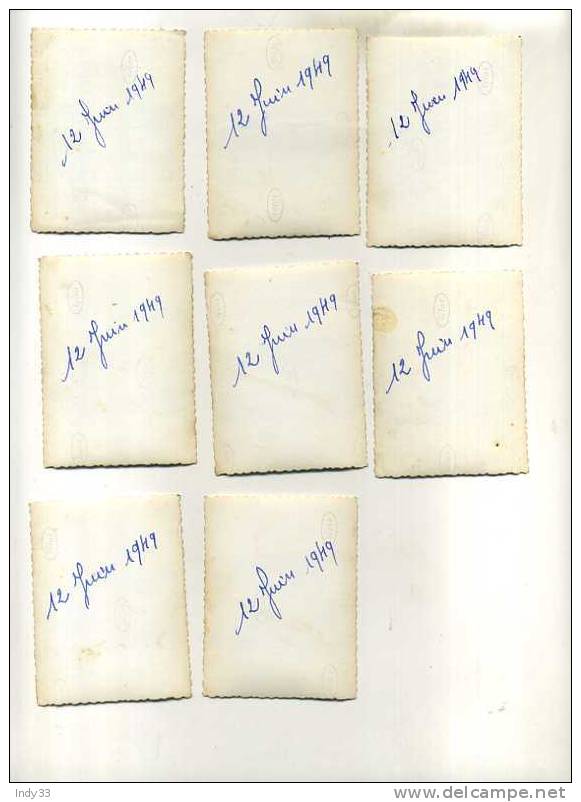 12 Juin 1949
12 Juin 1949
12 Juin 1949
12 Juin 1949
12 Juin 1949
12 Juin 1949
12 Juin 1949
12 Juin 1949
Indy33
www.delcampe.net